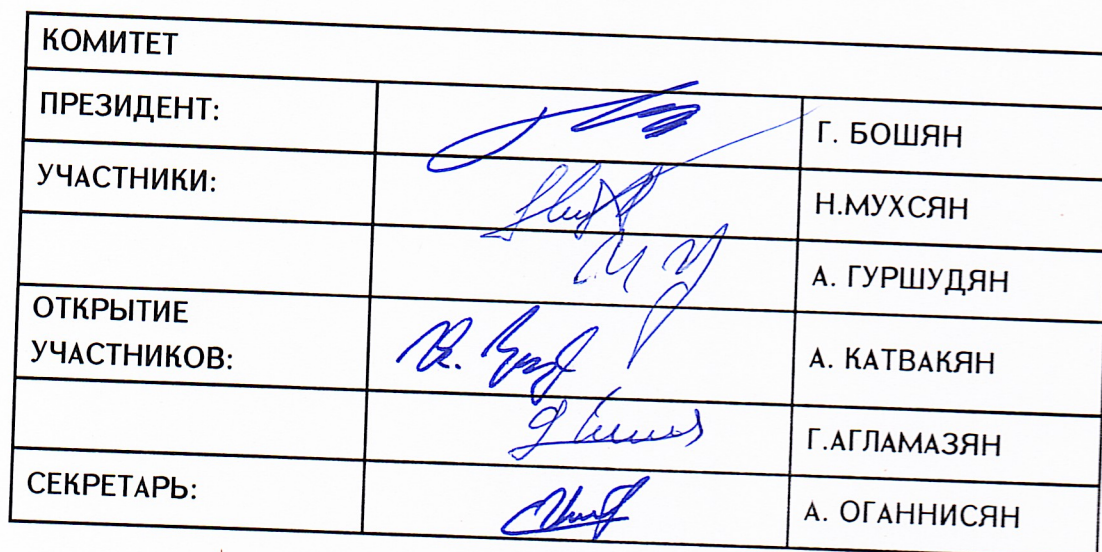 КОМИТЕТ
ПРЕЗИДЕНТ:
Г. БОШЯН
УЧАСТНИКИ:
Н.МУХСЯН
А. ГУРШУДЯН
ОТКРЫТИЕ
УЧАСТНИКОВ:
А. КАТВАКЯН
Г.АГЛАМАЗЯН
СЕКРЕТАРЬ:
А. ОГАННИСЯН